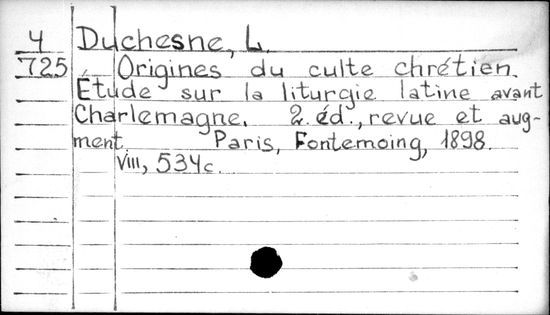 4 Duchesne, L.
725 Origines du culte chrétien.
Étude sur la liturgie latine avant
Charlemagne. 2 éd., revue et aug-
ment. Paris, Fontemoing, 1898.
VIII, 534 c.